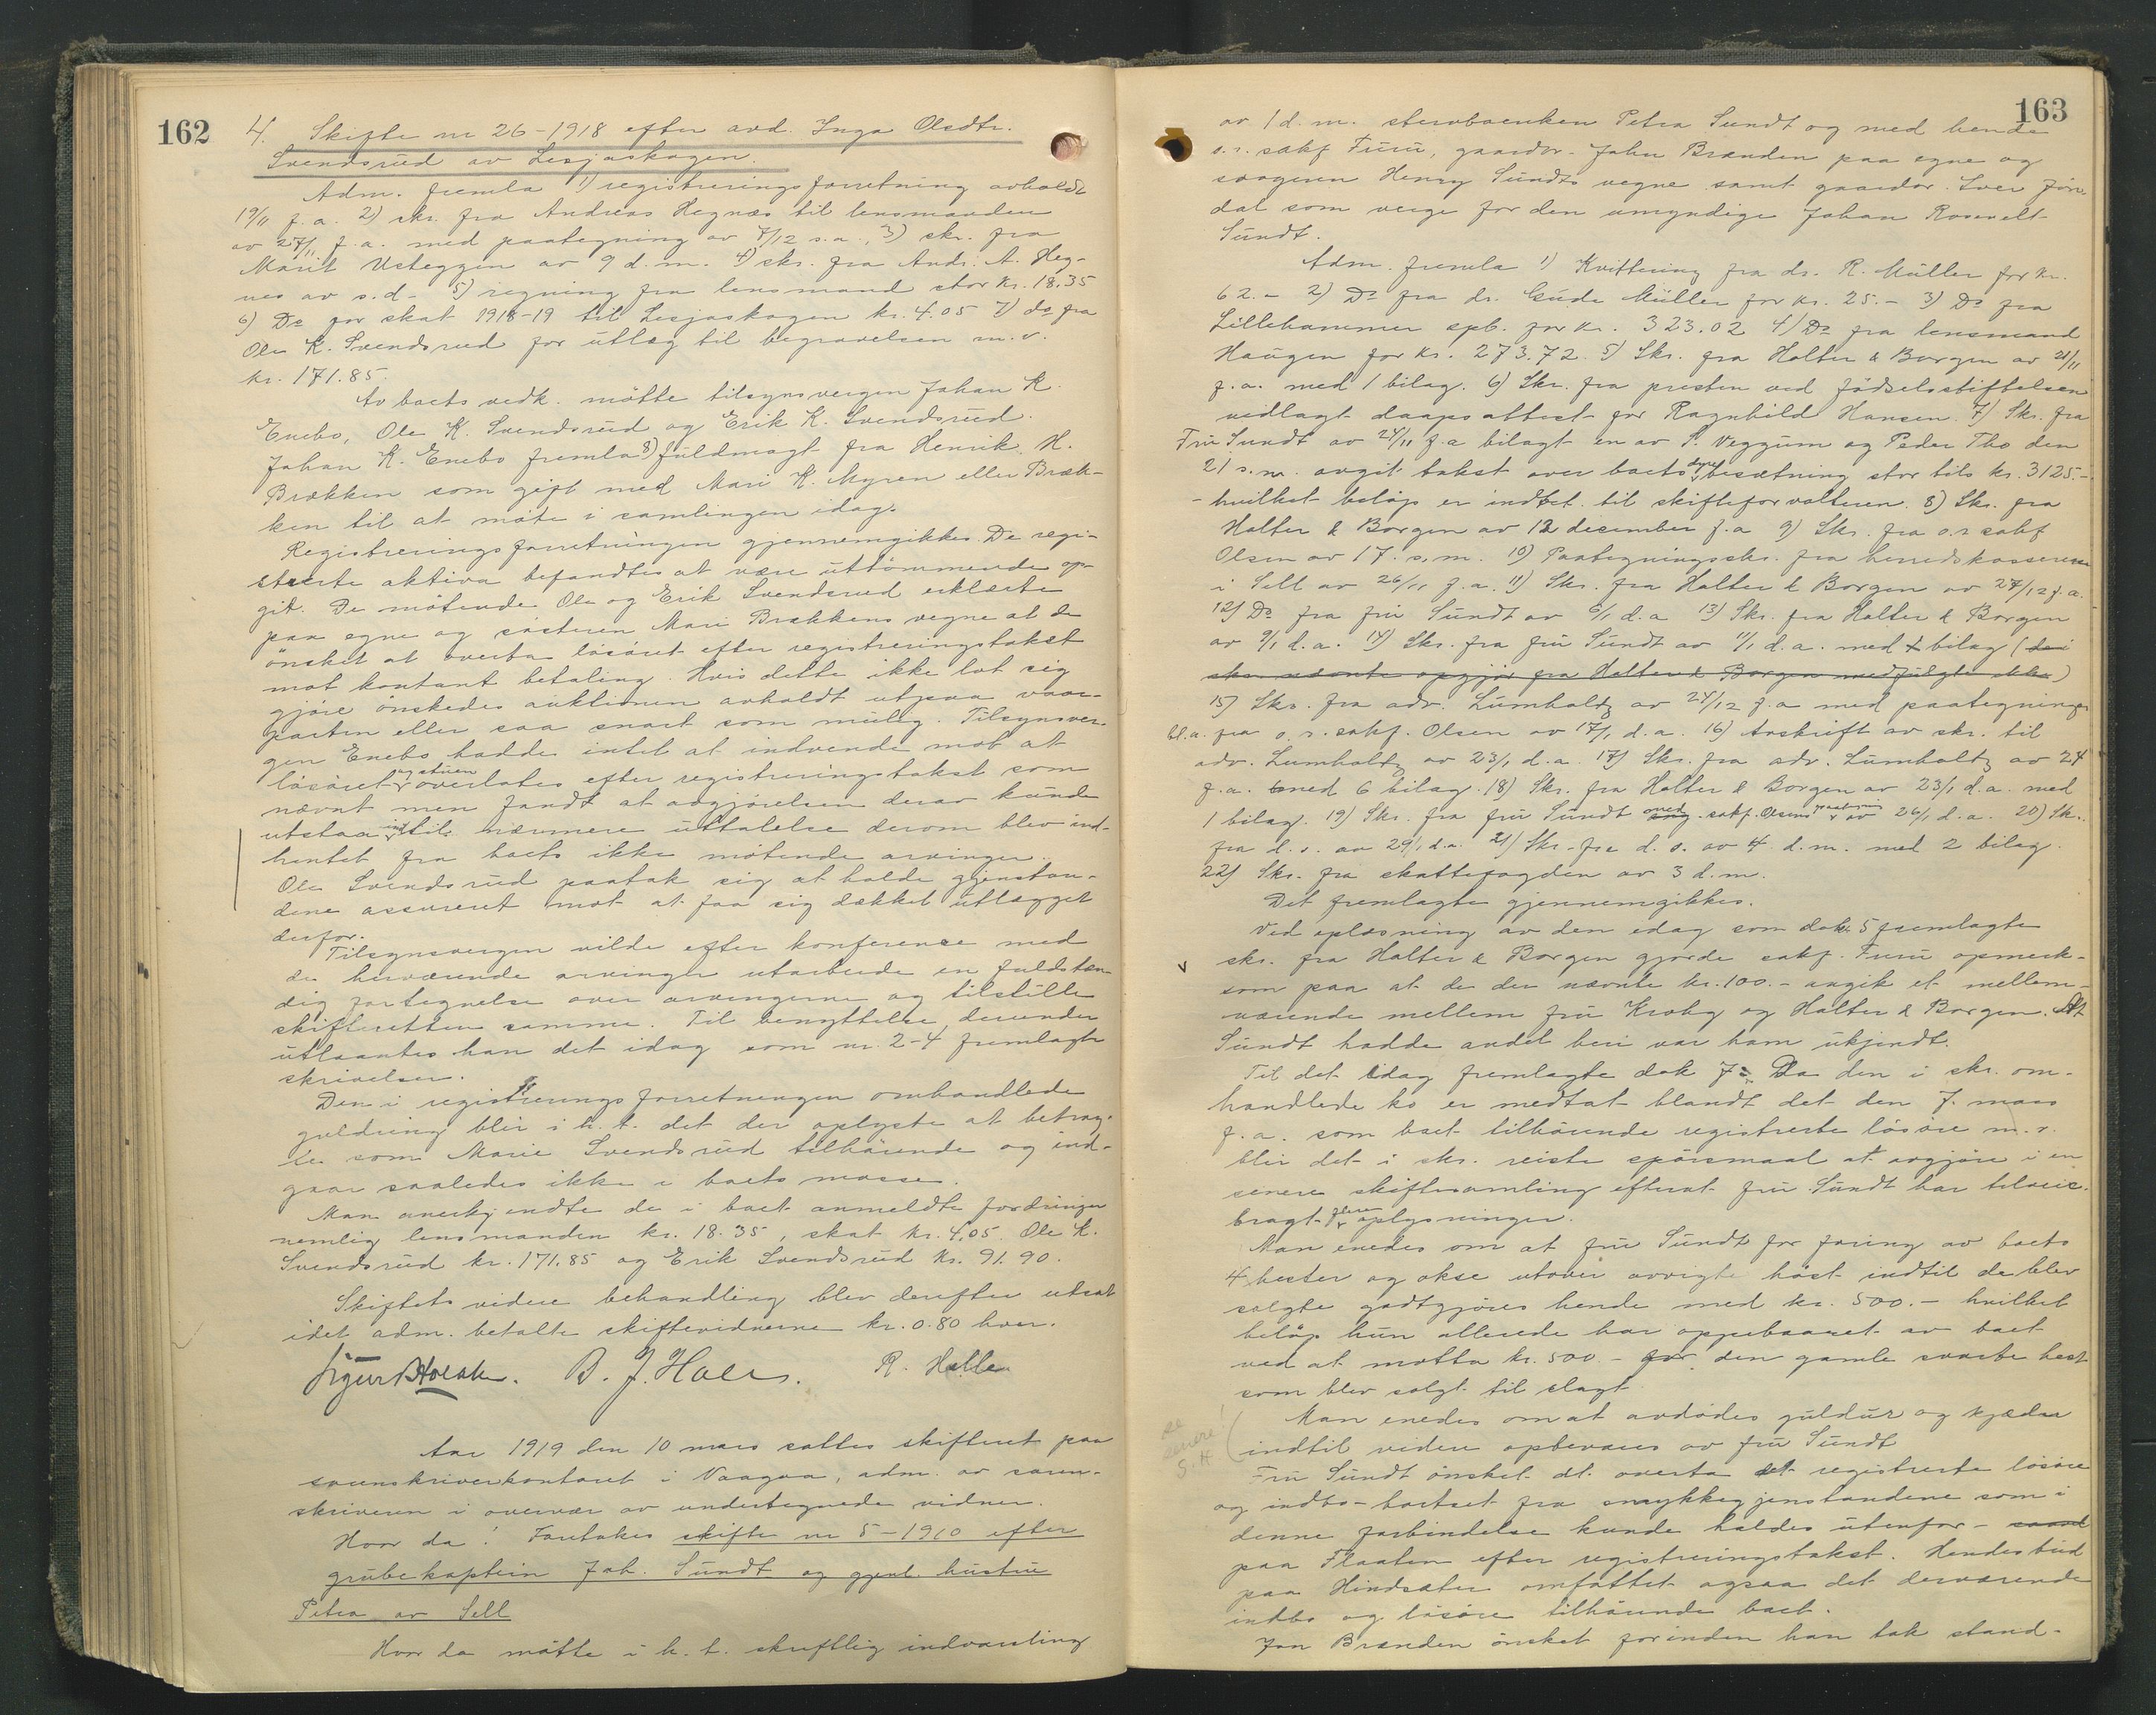 162
4. Skifte nr 26-1918 efter avd. Inga Olsdtr.
Svendsrud av Lesjaskogen.
Adm. fremla 1) registreringsforretning avholdt
19/11 f.a. 2) skr. fra Andreas Hegnæs til lensmanden
av 27/11 f.a. med paategning av 7/12 s.a., 3) skr. fra
Marit Usteggen av 9 d.m. 4) skr. fra Andr. A. Heg-
nes av s.d. 5) regning fra lensmand stor kr. 18.35
6) Do for skat 1918-19 til Lesjaskogen kr. 4.05 7) do fra
Ole K. Svendsrud for utlæg til begravelsen m.v.
kr. 171.85.
Av boets vedk. mötte tilsynsvergen Johan K.
Enebo, Ole K. Svendsrud og Erik K. Svendsrud.
Johan K. Enebo fremla 8) fuldmagt fra Henrik H.
Brækken som gift med Mari K. Myren eller Bræk-
ken til at möte i samlingen idag.
Registreringsforretningen gjennemgikkes. De regi-
strerte aktiva befandtes at være uttömmende op-
git. De mötende Ole og Erik Svendsrud erklærte
paa egne og sösteren Mari Brækkens vegne at de
önsket at overta lösöret efter registreringstakst
mot kontant betaling. Hvis dette ikke lot sig
gjöre önskedes auktionen avholdt utpaa vaar-
parten eller saa snart som mulig. Tilsynsver-
gen Enebo hadde intet at indvende mot at
lösöret og stuen overlates efter registreringstakst som
nævnt men fandt at avgjörelsen derav kunde
utstaa indtil nærmere uttalelse derom blev ind-
hentet fra boets ikke mötende arvinger.
Ole Svendsrud paatok sig at holde gjenstan-
dene assureret mot at faa sig dækket utlægget
derfor.
Tilsynsvergen vilde efter konference med
de herværende arvinger utarbeide en fuldstæn-
dig fortegnelse over arvingerne og tilstille
skifteretten samme. Til benyttelse derunder
utlaantes han det idag som nr. 2-4 fremlagte
skrivelser.
Den i registreringsforretningen omhandlede
guldring blir i h.t. det der oplyste at betrag-
te som Marie Svendsrud tilhörende og ind-
gaar saaledes ikke i boets masse.
Man anerkjendte de i boet anmeldte fordringer
nemlig lensmanden kr. 18.35, skat kr. 4.05. Ole K.
Svendsrud kr. 171.85 og Erik Svendsrud kr. 91.90.
Skiftets videre behandling blev derefter utsat
idet adm. betalte skiftevidnerne kr. 0.80 hver.
Sigurd Holst. B. J. Hole. R. Holle
Aar 1919 den 10 mars sattes skifteret paa
sorenskriverkontoret i Vaagaa, adm. av soren-
skriveren i overvær av undertegnede vidner.
Hvor da: Foretakes skifte nr 5-1910 efter
grubekaptein Joh. Sundt og gjenl. hustru
Petra av Sell
Hvor da mötte i h.t. skriftlig indvarsling
163
av 1 d.m. stervboenken Petra Sundt og med hende
o.r. sakf Furu, gaardbr. John Brænden paa egne og
svogeren Henry Sundts vegne samt gaardbr. Iver Jön-
dal som verge for den umyndige Johan Rosevelt
Sundt.
Adm. fremla 1) Kvittering fra dr. R. Müller for kr.
62.- 2) Do fra dr. Gude Müller for kr. 25.- 3) Do fra
Lillehammer spb. for kr. 323.02 4) Do fra lensmand
Haugen for kr. 273.72. 5) Skr. fra Holter & Borgen av 21/11
f.a. med 1 bilag. 6) Skr. fra presten ved födselsstiftelsen
vedlagt daapsattest for Ragnhild Hansen. 7) Skr. fra
Fru Sundt av 24/11 f.a bilagt en av P. Veggum og Peder Tho den
21 s.m. avgit takst over boets dyrebesætning stor tils kr. 3125.-
- hvilket belöp er indbet. til skifteforvalteren. 8) Skr. fra
Holter & Borgen av 12 desember f.a 9) Skr. fra o.r sakf
Olsen av 17. s.m. 10) Paategningsskr. fra herredskassereren
i Sell av 26/11 f.a. 11) Skr. fra Holter & Borgen av 27/12 f.a.
12) Do fra fru Sundt av 6/1 d.a 13) Skr. fra Holter & Borgen
av 9/1 d.a. 14) Skr. fra fru Sundt av 11/1 d.a. med 1 bilag (det i
skr. nævnte opgjör fra Holter & Borgen medfulgte ikke)
15) Skr. fra adv. Lumholtz av 24/12 f.a med paategninger
bl.a. fra o.r. sakf. Olsen av 17/1 d.a. 16) Avskrift av skr. til
adv. Lumholtz av 23/1 d.a. 17) Skr. fra adv. Lumholtz av 24
f.a. med 6 bilag. 18) Skr. fra Holter & Borgen av 23/1 d.a. med
1 bilag. 19) Skr. fra fru Sundt med sakf. Olsens paategning av 26/1 d.a. 20) Skr.
fra d.s. av 29/1 d.a. 21) Skr. fra d.s. av 4 d.m. med 2 bilag.
22) Skr. fra skattefogden av 3 d.m.
Det fremlagte gjennemgikkes.
Ved oplæsning av den idag som dok. 5 fremlagte
skr. fra Holter & Borgen gjorde sakf. Furu opmerk-
som paa at de der nævnte kr. 100.- angik et mellem-
værende mellem fru Krohg og Holter & Borgen. At
Sundt hadde andel heri var ham ukjendt.
Til det idag fremlagte dok 7: Da den i skr. om-
handlede ko er medtat blandt det den 7. mars
f.a. som boet tilhörende registrerte lösöre m.v.
blir det i skr. reiste spörsmaal at avgjöre i en
senere skiftesamling efterat fru Sundt har tilveie-
bragt flere oplysninger.
Man enedes om at fru Sundt for foring av boets
4 hester og okse utover avvigte höst indtil de blev
solgte godtgjöres hende med kr. 500.- hvilket
belöp hun allerede har oppebaaret av boet
ved at motta kr. 500.- for den gamle svarte hest
som blev solgt til slagt.
Man enedes om at avdödes guldur og kjæde
indtil videre opbevares av fru Sundt
se senere! S.H
Fru Sundt önsket at overta det registrerte lösöre
og indbo - bortset fra smykkegjenstandene som i
denne forbindelse kunde holdes utenfor -
paa Flaaten efter registreringstakst. Hendes bud
paa Hindsæter omfattet ogsaa det derværende
indbo og lösöre tilhörende boet.
Jon Brænden önsket forinden han tok stand-